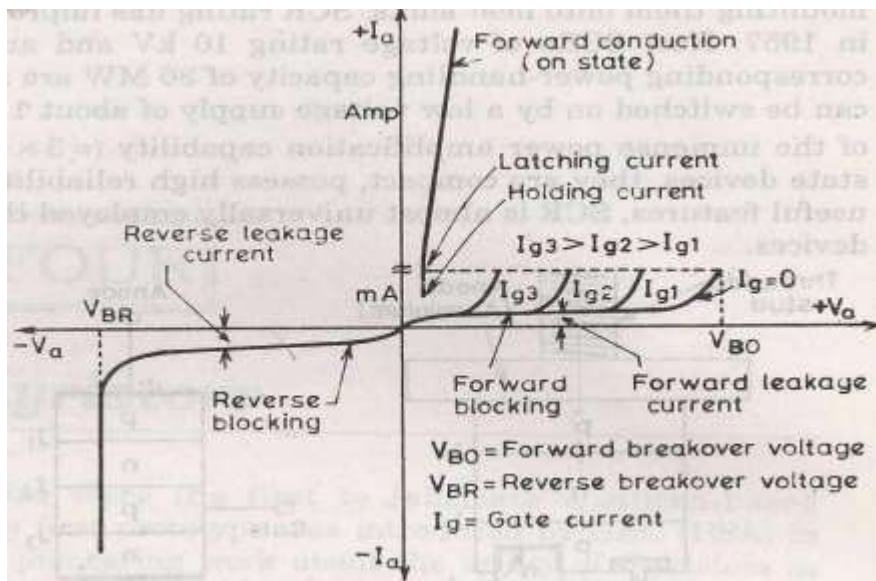 +Ia
Forward conduction
(on state)
Amp
Latching current
Holding current
Reverse leakage
current
Ig3 > Ig2 > Ig1
VBR
mA
Ig3
Ig2
Ig1
Ig=0
+Va
-Va
VBO
Reverse
blocking
Forward
blocking
Forward leakage
current
VBO = Forward breakover voltage
VBR = Reverse breakover voltage
Ig = Gate current
-Ia